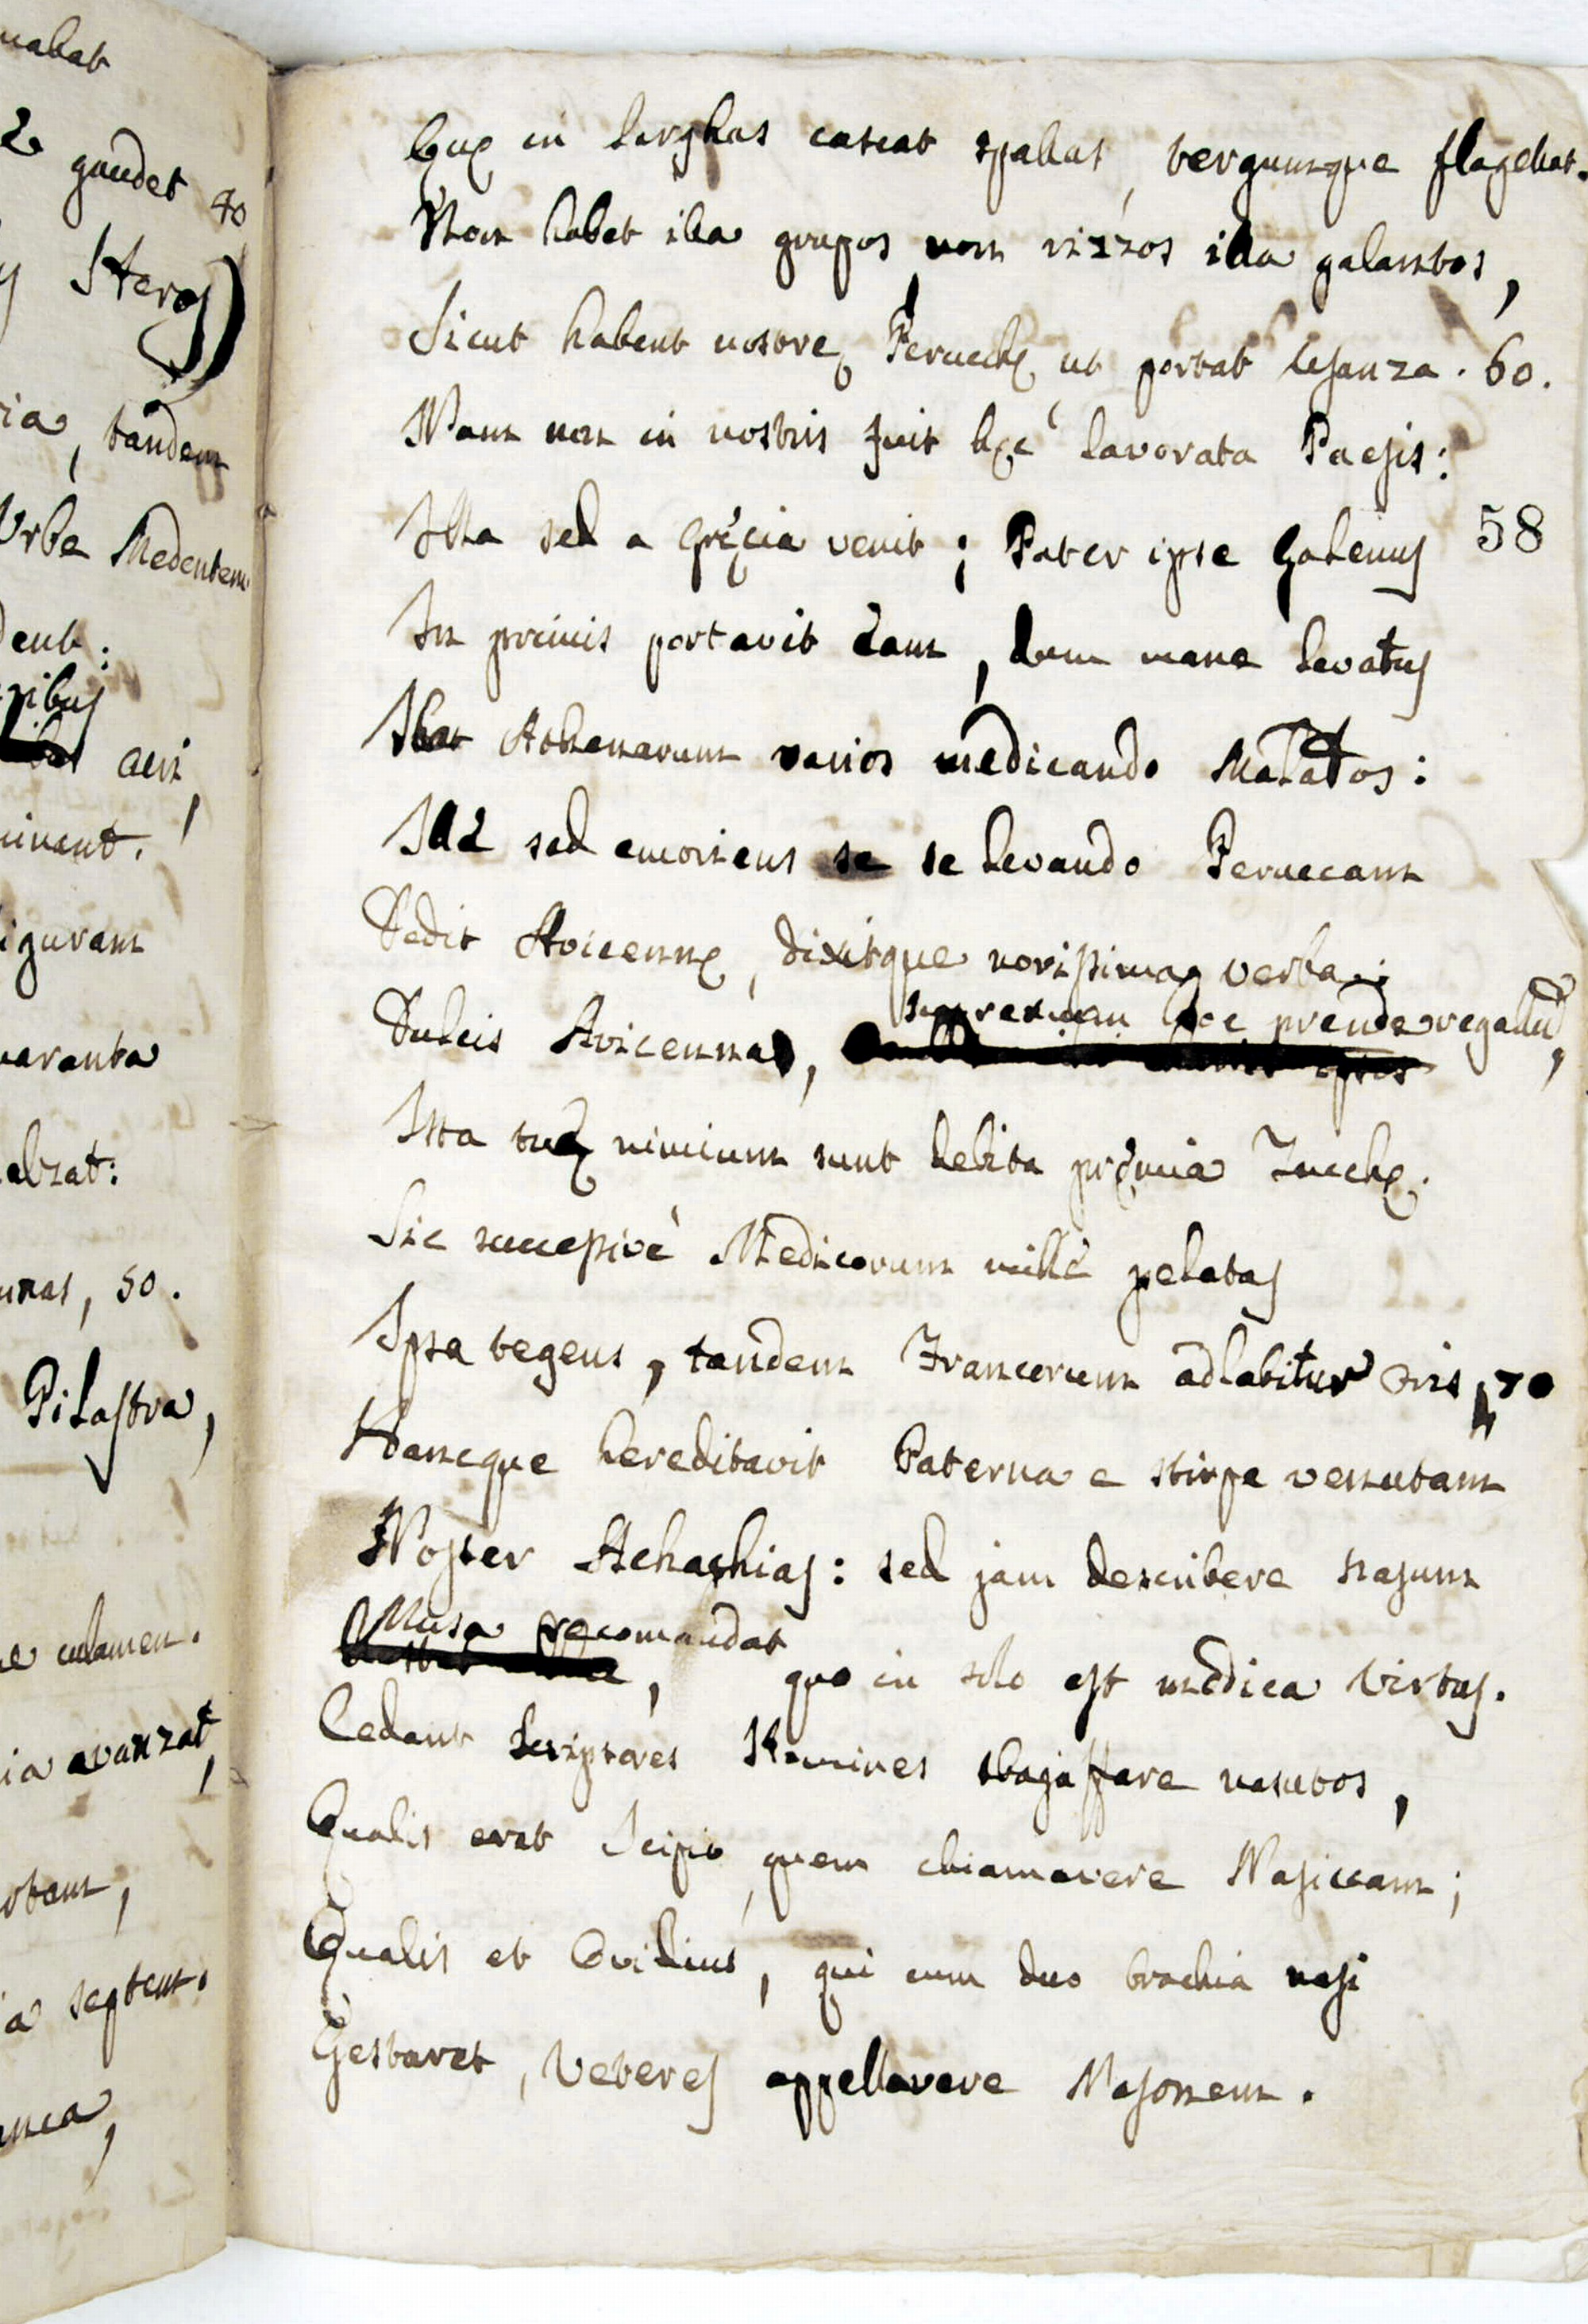 nabat
gaudet 40
Heros)
ria, tandem
Urbe Medentem
dent:
ribus
aeri,
minant.
figuram
quaranta
alzat:
unas, 50.
Pilastra,
culamen.
ia avanzat,
ia septem.
anca,
Quę in larghas cascat spallas, tergumque flagellat.
Non habet illa grupos, non rizzos illa galantos,
Sicut habent nostrę Peruechę, ut portat Usanza. 60.
Nam non in nostris fuit hęc lavorata Paesis:
Illa sed a Gręcia venit; Pater ipse Galenus 58
In primis portavit eam, dum mane levatus
Ibat Athenarum varios medicando Malatos:
Ille sed emoriens se se levando Peruecam
Dedit Avicennę, dixitque novissima verba:
Dulcis Avicenna, supremum hoc prende regalum,
Ista tuę nimium sunt debita pręmia Zucchę.
Sic successivè Medicorum mille pelatas
Ipsa tegens, tandem Francorum adlabitur oris, 70
Hancque hereditavit Paterna e stirpe venutam
Noster Achaghias: sed jam describere nasum
Musa recomandat, quo in solo est medica Virtus.
Cedant Scriptores Homines sbajaffare nasutos,
Qualis erat Scipio, quem chiamavere Nasiccam;
Qualis et Ovidius, qui cum duo brachia nasi
Gestaret, Veteres appellavere Nasonem.